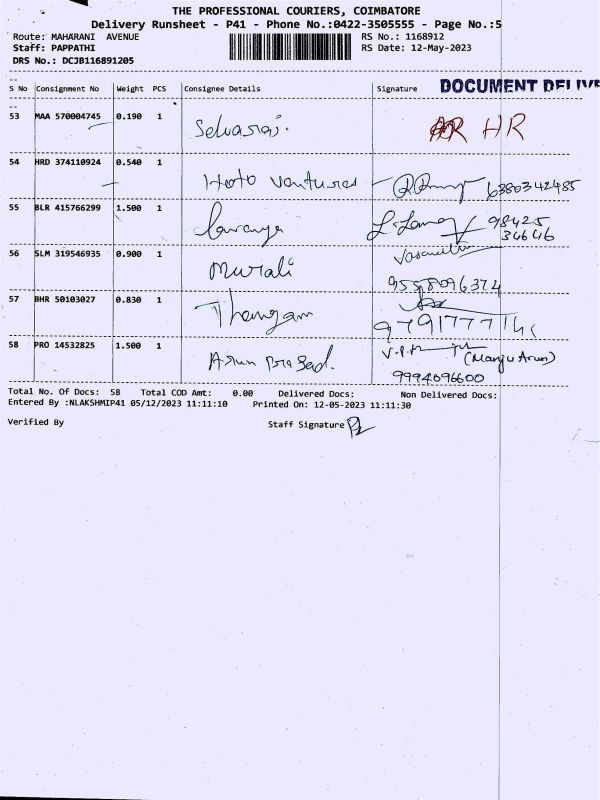 THE PROFESSIONAL COURIERS, COIMBATORE
Delivery Runsheet - P41 - Phone No.:0422-3505555 - Page No.:5
Route: MAHARANI AVENUE RS No.: 1168912
Staff: PAPPATHI RS Date: 12-May-2023
DRS No.: DCJB116891205
S No Consignment No Weight PCS Consignee Details Signature DOCUMENT DELIVE
53 MAA 570004745 0.190 1
Selvaraj. HR
54 HRD 374110924 0.540 1
Hoto Ventures 6380342485
55 BLR 415766299 1.500 1
Lavanya 98425
34646
56 SLM 319546935 0.900 1
Murali Vasanthi
9558096374
57 BHR 50103027 0.830 1
Thangam
58 PRO 14532825 1.500 1
Arun Prasad. (Manju Arun)
9994096600
Total No. Of Docs: 58 Total COD Amt: 0.00 Delivered Docs: Non Delivered Docs:
Entered By :NLAKSHMIP41 05/12/2023 11:11:10 Printed On: 12-05-2023 11:11:30
Verified By Staff Signature